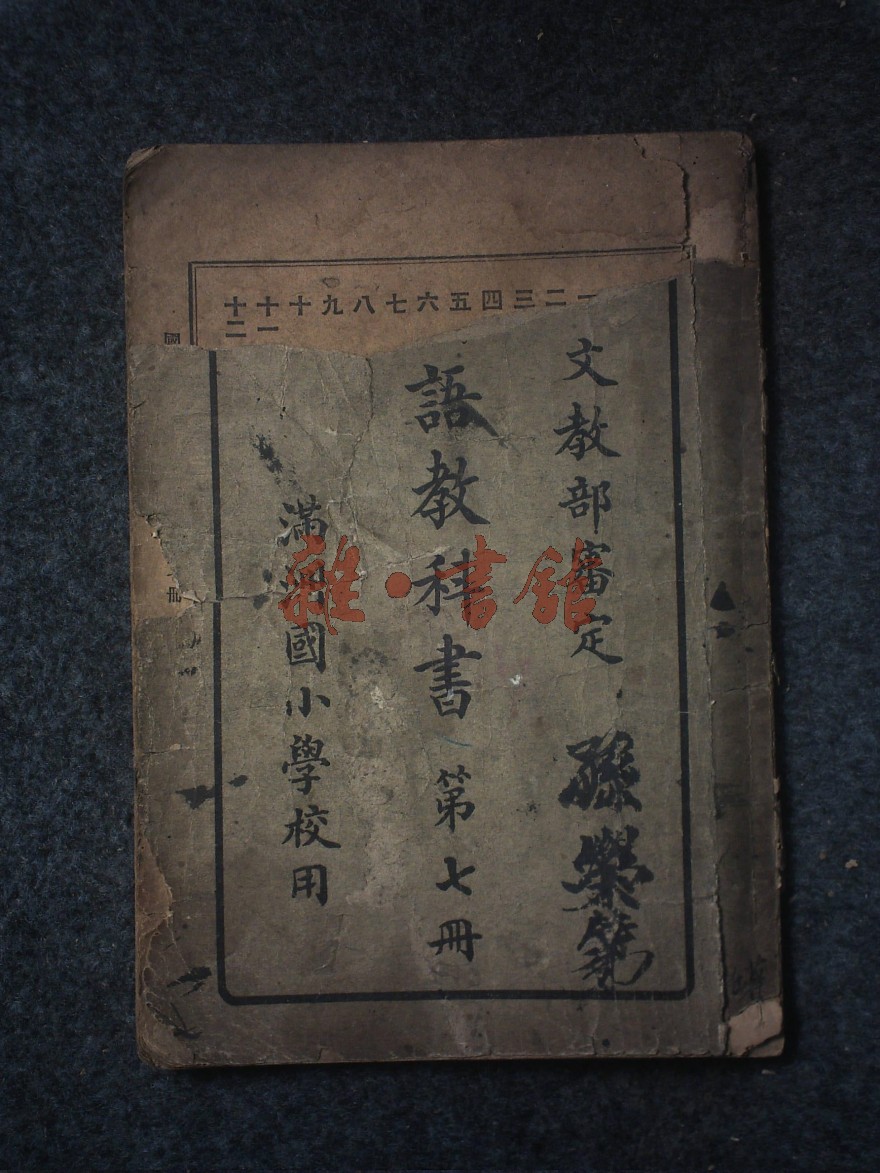 文教部審定
語教科書 第七冊
滿洲國小學校用
一
二
三
四
五
六
七
八
九
十
十一
十二
國
冊
雜·書館